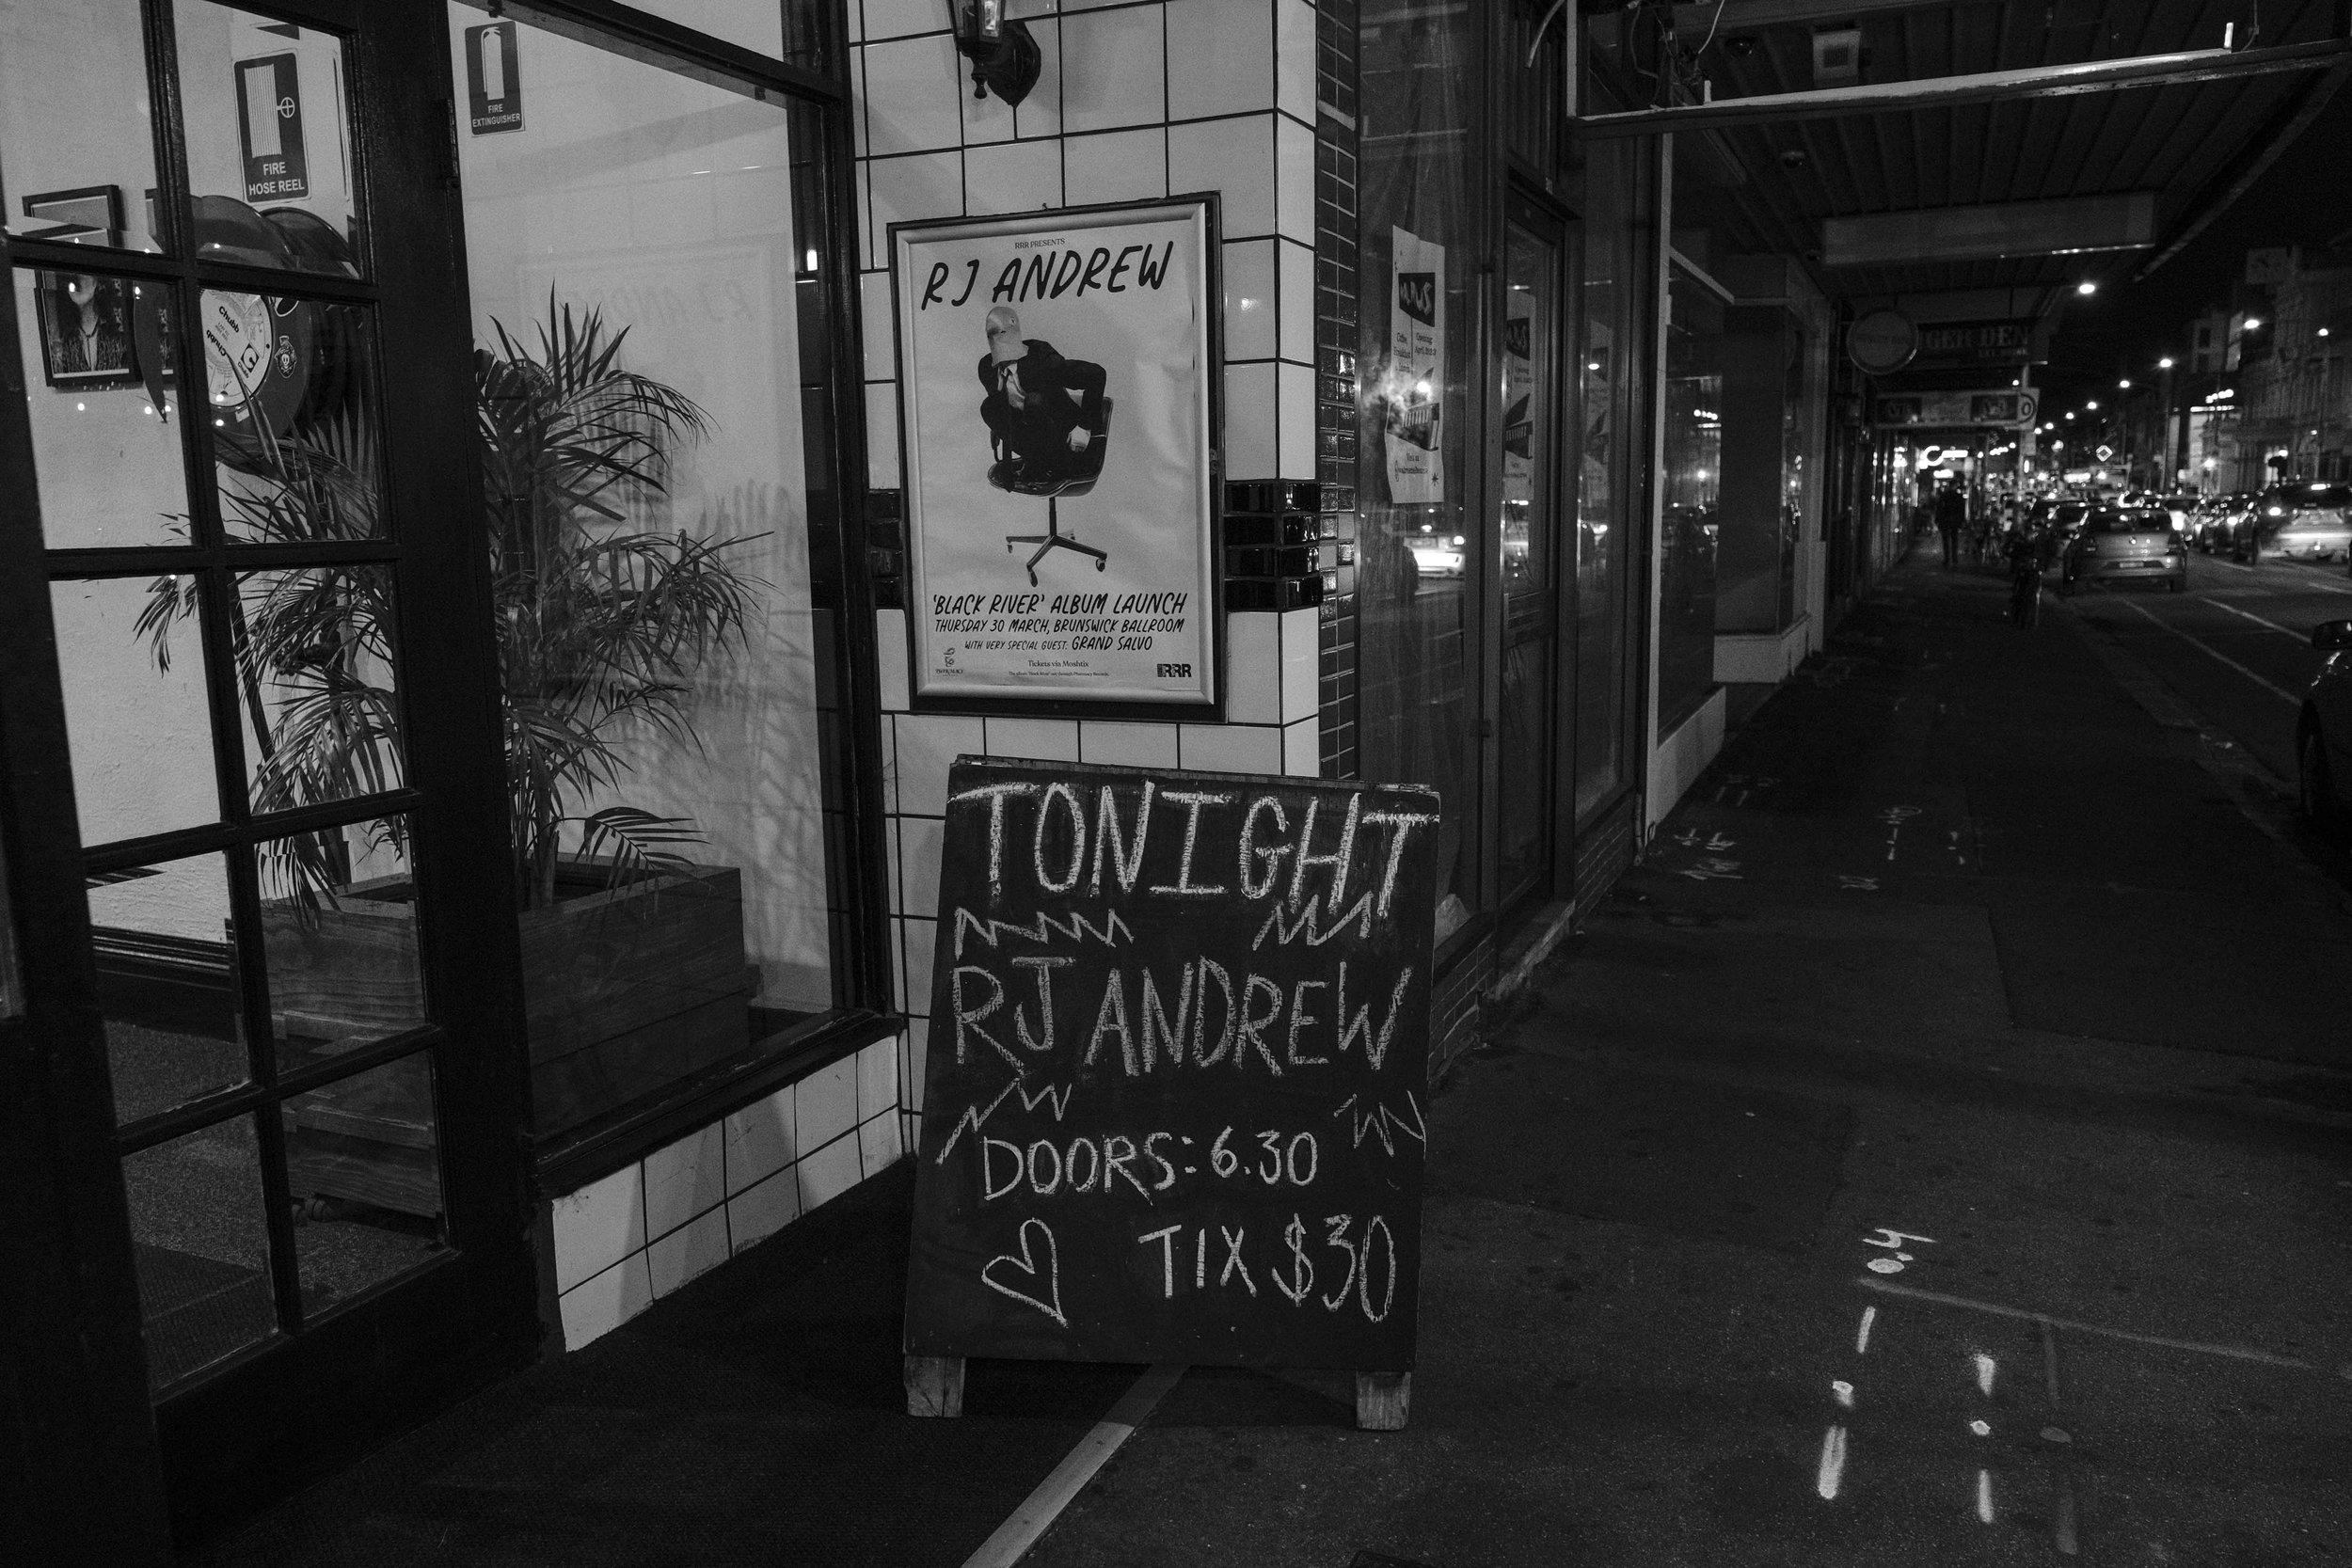 FIRE
HOSE REEL
FIRE
EXTINGUISHER
Chubb
Chubb
RRR PRESENTS
RJ ANDREW
'BLACK RIVER' ALBUM LAUNCH
THURSDAY 30 MARCH, BRUNSWICK BALLROOM
WITH VERY SPECIAL GUEST: GRAND SALVO
Tickets via Moshtix
RRR
TONIGHT
RJ ANDREW
DOORS: 6.30
TIX $30